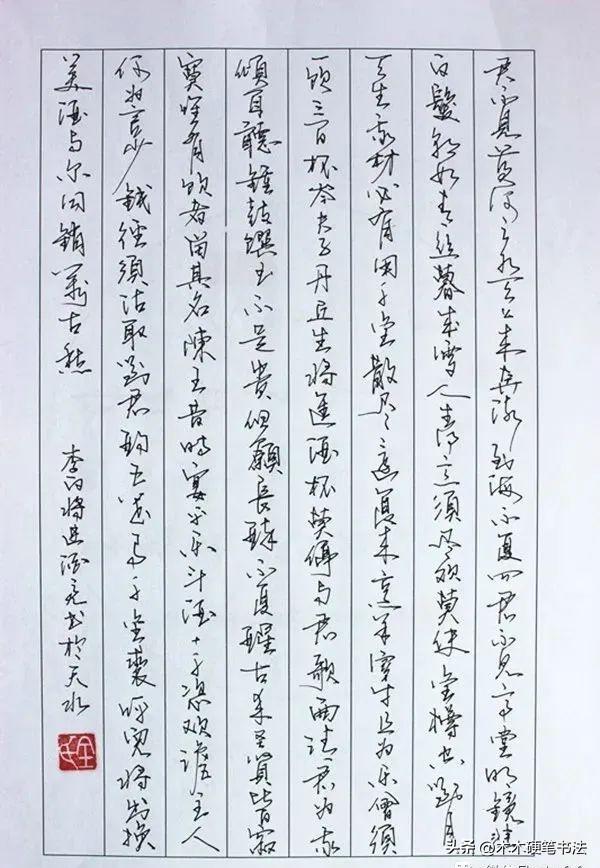 君不見黄河之水天上来奔流到海不復回君不见高堂明鏡悲
白髮朝如青丝暮成雪人生得意須尽欢莫使金樽空對月
天生我材必有用千金散尽还復来烹羊宰牛且为乐會須
一饮三百杯岑夫子丹丘生将進酒杯莫停与君歌一曲请君为我
傾耳聽鍾鼓饌玉不足贵但願長醉不復醒古来圣賢皆寂
寞惟有饮者留其名陳王昔時宴平乐斗酒十千恣欢谑主人
何为言少錢徑須沽取對君酌五花马千金裘呼兒将出换
美酒与尔同銷萬古愁 李白将进酒 书於天水
头条 @木木硬笔书法